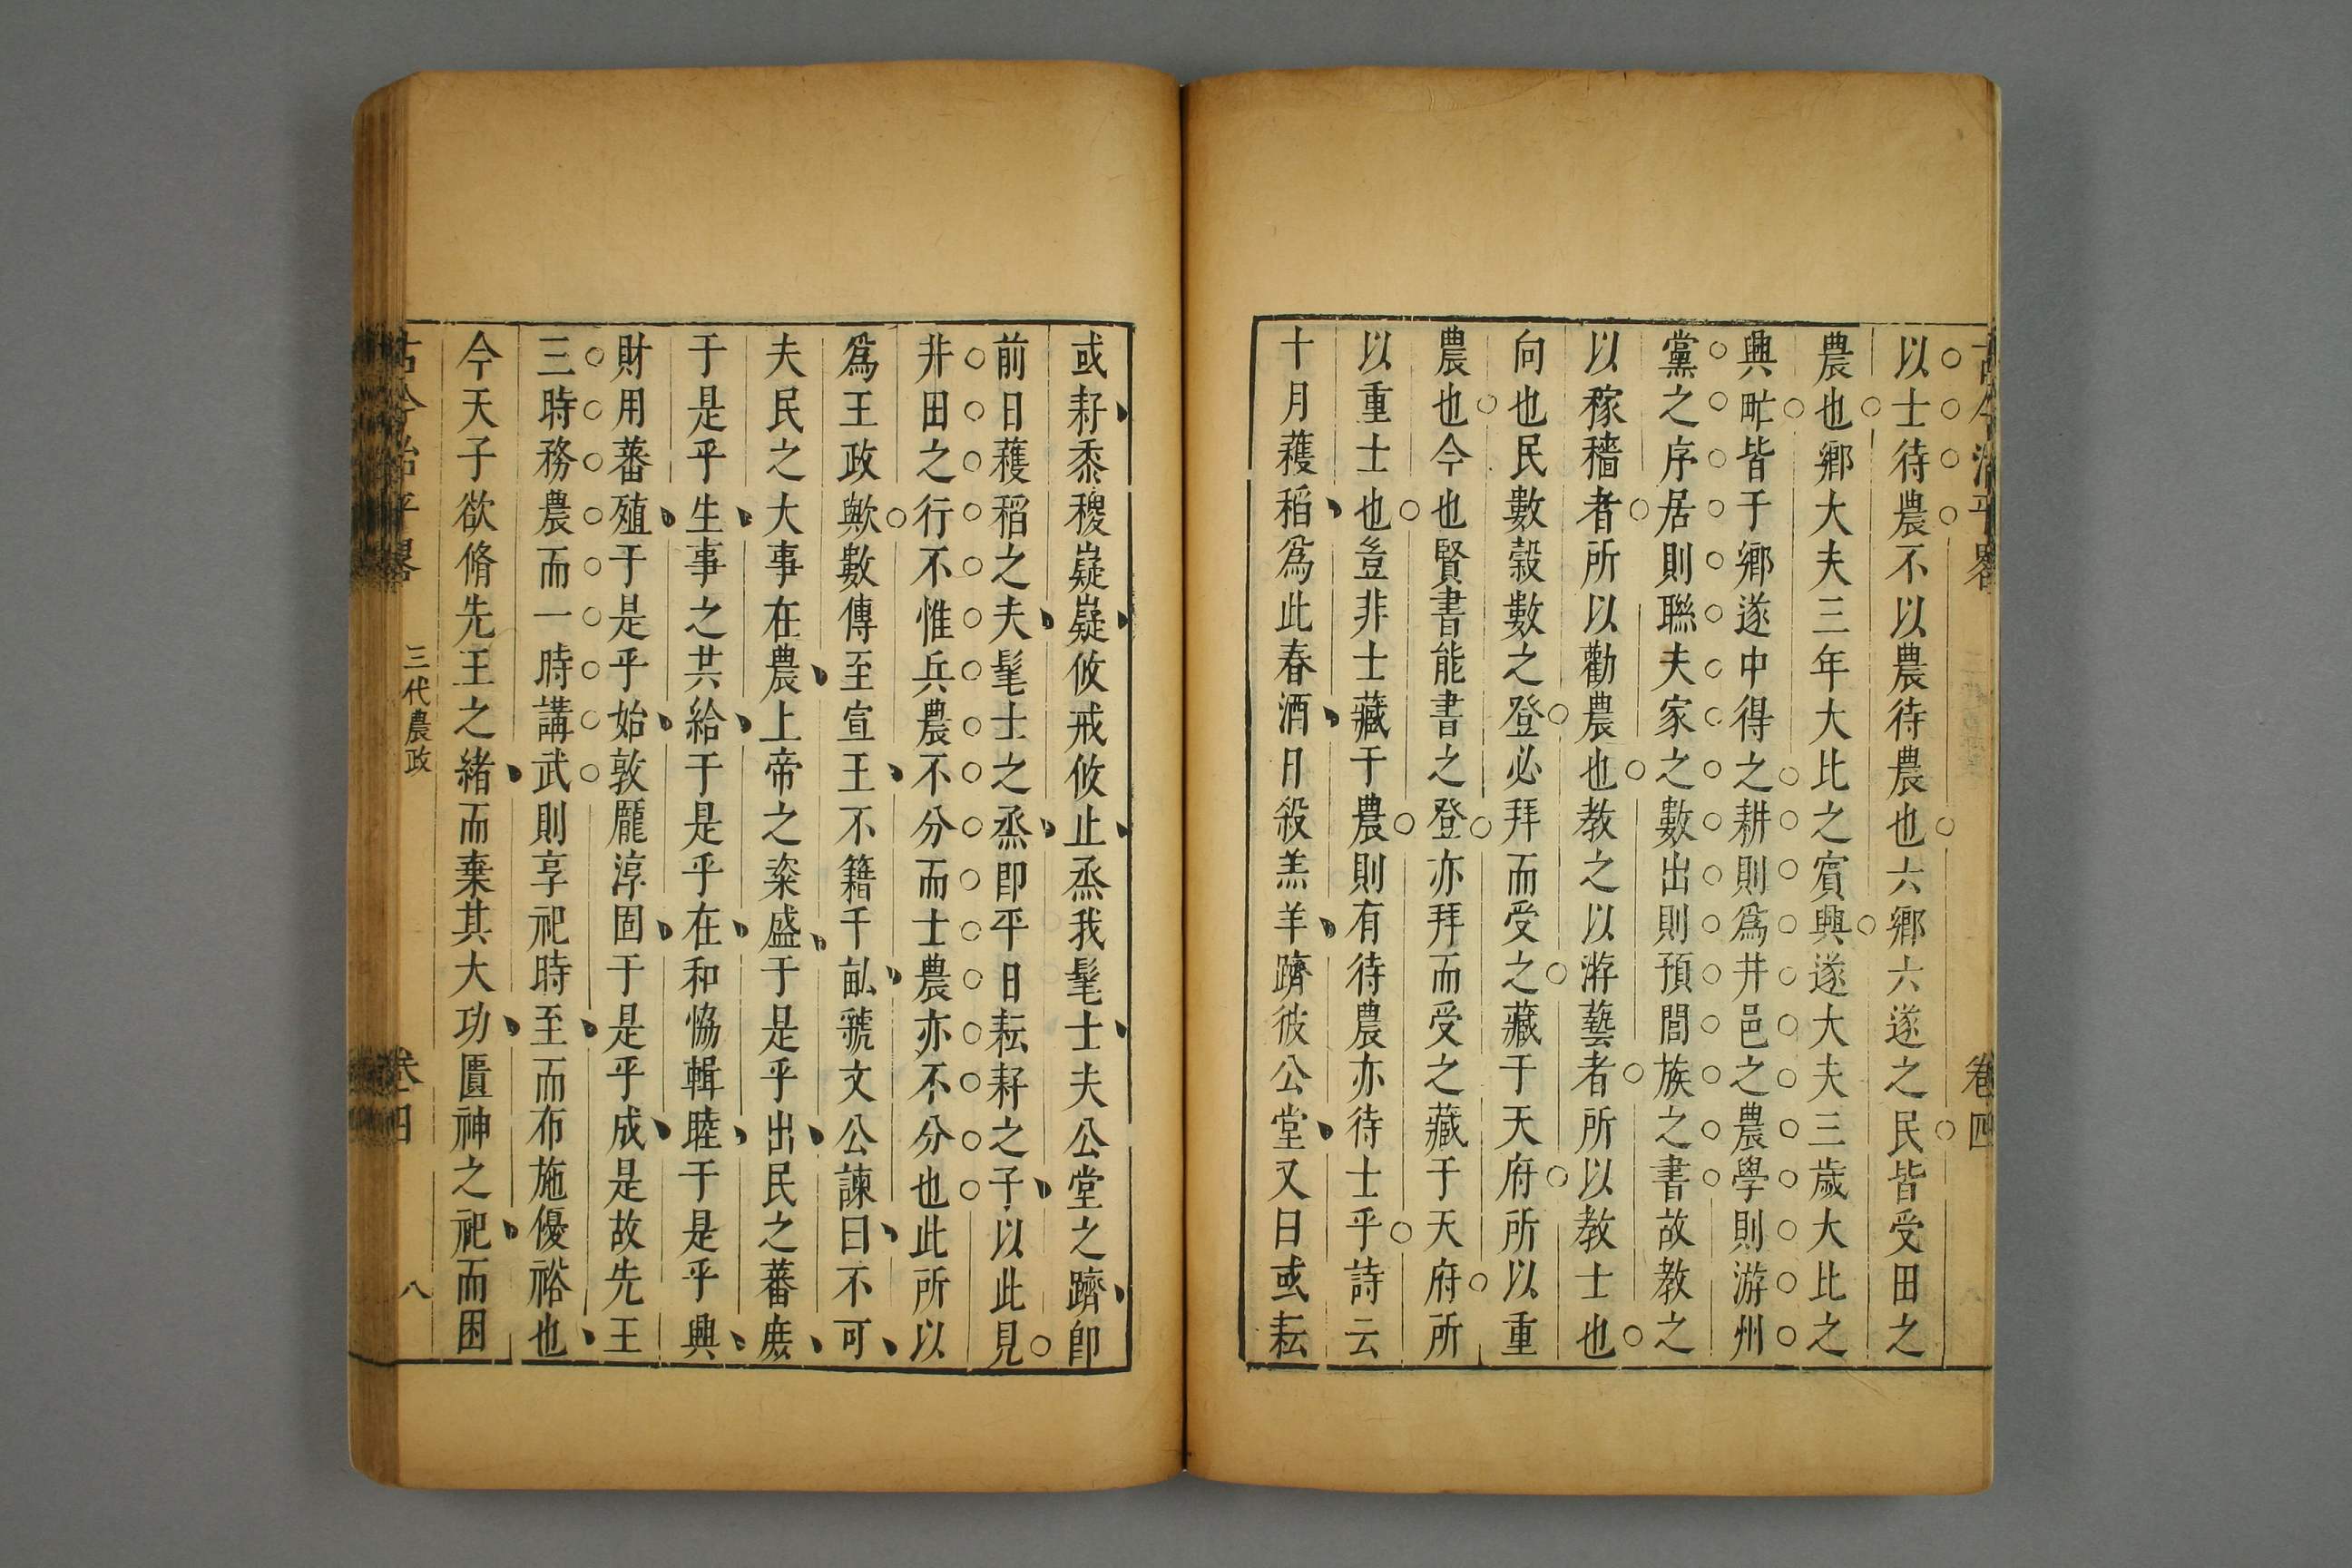 古今治平畧 卷四
以士待農不以農待農也六鄉六遂之民皆受田之
農也鄉大夫三年大比之賓興遂大夫三歲大比之
興甿皆于鄉遂中得之耕則爲井邑之農學則游州
黨之序居則聯夫家之數出則預閭族之書故教之
以稼穡者所以勸農也教之以游藝者所以教士也
向也民數穀數之登必拜而受之藏于天府所以重
農也今也賢書能書之登亦拜而受之藏于天府所
以重士也豈非士藏于農則有待農亦待士乎詩云
十月穫稻爲此春酒日殺羔羊躋彼公堂又日或耘
或耔黍稷嶷嶷攸戒攸止烝我髦士夫公堂之躋卽
前日穫稻之夫髦士之烝卽平日耘耔之子以此見
井田之行不惟兵農不分而士農亦不分也此所以
爲王政歟數傳至宣王不籍千畝虢文公諫曰不可
夫民之大事在農上帝之粢盛于是乎出民之蕃庶
于是乎生事之共給于是乎在和恊輯睦于是乎興
財用蕃殖于是乎始敦龐淳固于是乎成是故先王
三時務農而一時講武則享祀時至而布施優裕也
今天子欲脩先王之緒而棄其大功匱神之祀而困
古今治平畧 三代農政 卷四 八